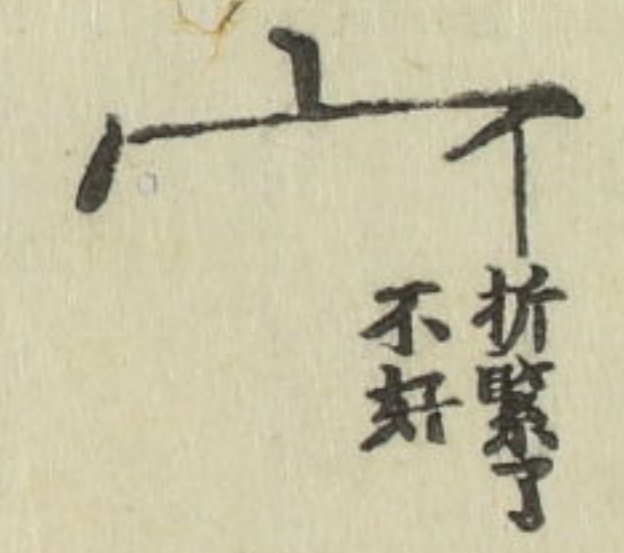 宀
折緊了
不好